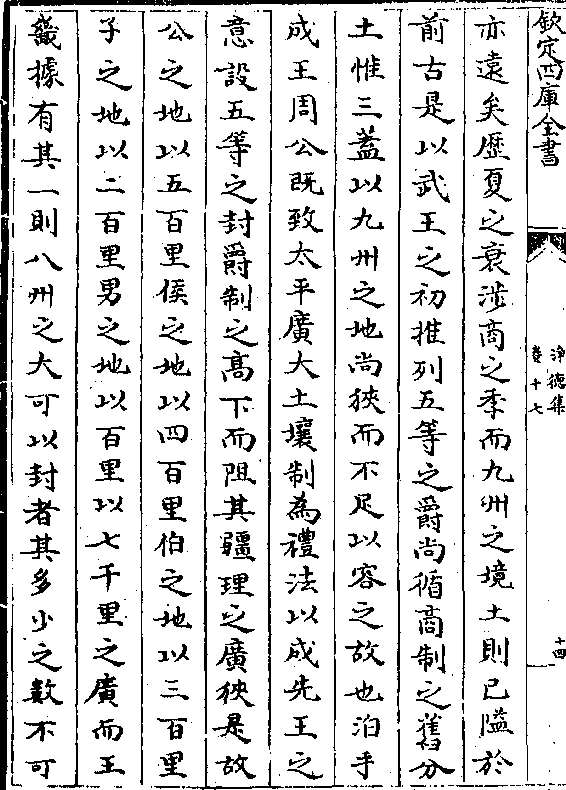 欽定四庫全書
淨德集
卷十七
十四
亦遠矣歴夏之衰涉商之季而九州之境土則已隘於
前古是以武王之初推列五等之爵尚循商制之舊分
土惟三蓋以九州之地尚狹而不足以容之故也洎乎
成王周公既致太平廣大土壤制為禮法以成先王之
意設五等之封爵制之髙下而阻其疆理之廣狹是故
公之地以五百里侯之地以四百里伯之地以三百里
子之地以二百里男之地以百里以七千里之廣而王
畿據有其一則八州之大可以封者其多少之數不可